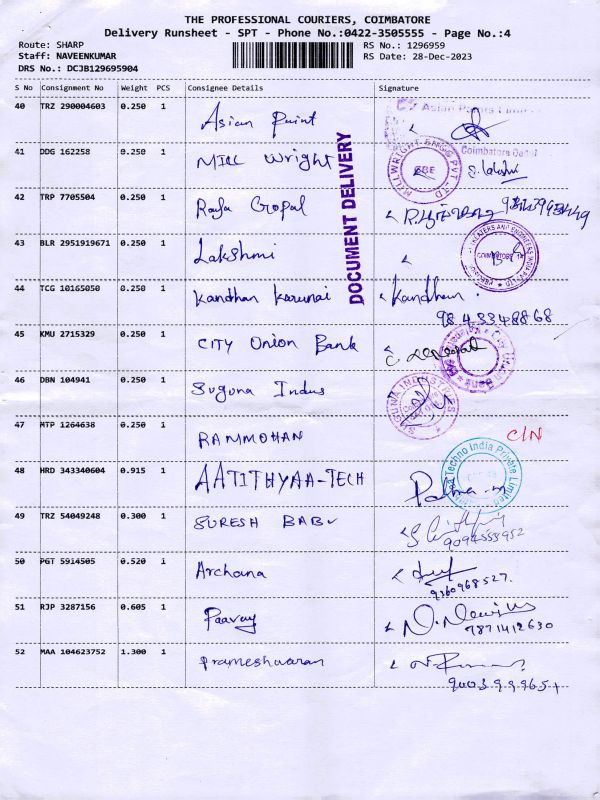 THE PROFESSIONAL COURIERS, COIMBATORE
Delivery Runsheet - SPT - Phone No.:0422-3505555 - Page No.:4
Route: SHARP
Staff: NAVEENKUMAR
DRS No.: DCJB129695904
RS No.: 1296959
RS Date: 28-Dec-2023
S No Consignment No Weight PCS Consignee Details Signature
40 TRZ 290004603 0.250 1 Asian Paint
41 DDG 162258 0.250 1 Mill Wright
42 TRP 7705504 0.250 1 Raja Gopal
43 BLR 2951919671 0.250 1 Lakshmi
44 TCG 10165050 0.250 1 Kandhan Karunai Kandhan
9843348868
45 KMU 2715329 0.250 1 CITY Union Bank
46 DBN 104941 0.250 1 Suguna Indus
47 MTP 1264638 0.250 1 RAMMOHAN C/N
48 HRD 343340604 0.915 1 AATITHYAA-TECH
49 TRZ 54049248 0.300 1 SURESH BABU
9094553952
50 PGT 5914505 0.520 1 Archana
9360968527.
51 RJP 3287156 0.605 1 Paavay
7871412630
52 MAA 104623752 1.300 1 Prameshwaran
DOCUMENT DELIVERY
Asian Paints Limited
Coimbatore Depot
SUGUNA INDUSTRIES
Techno India Private Limited